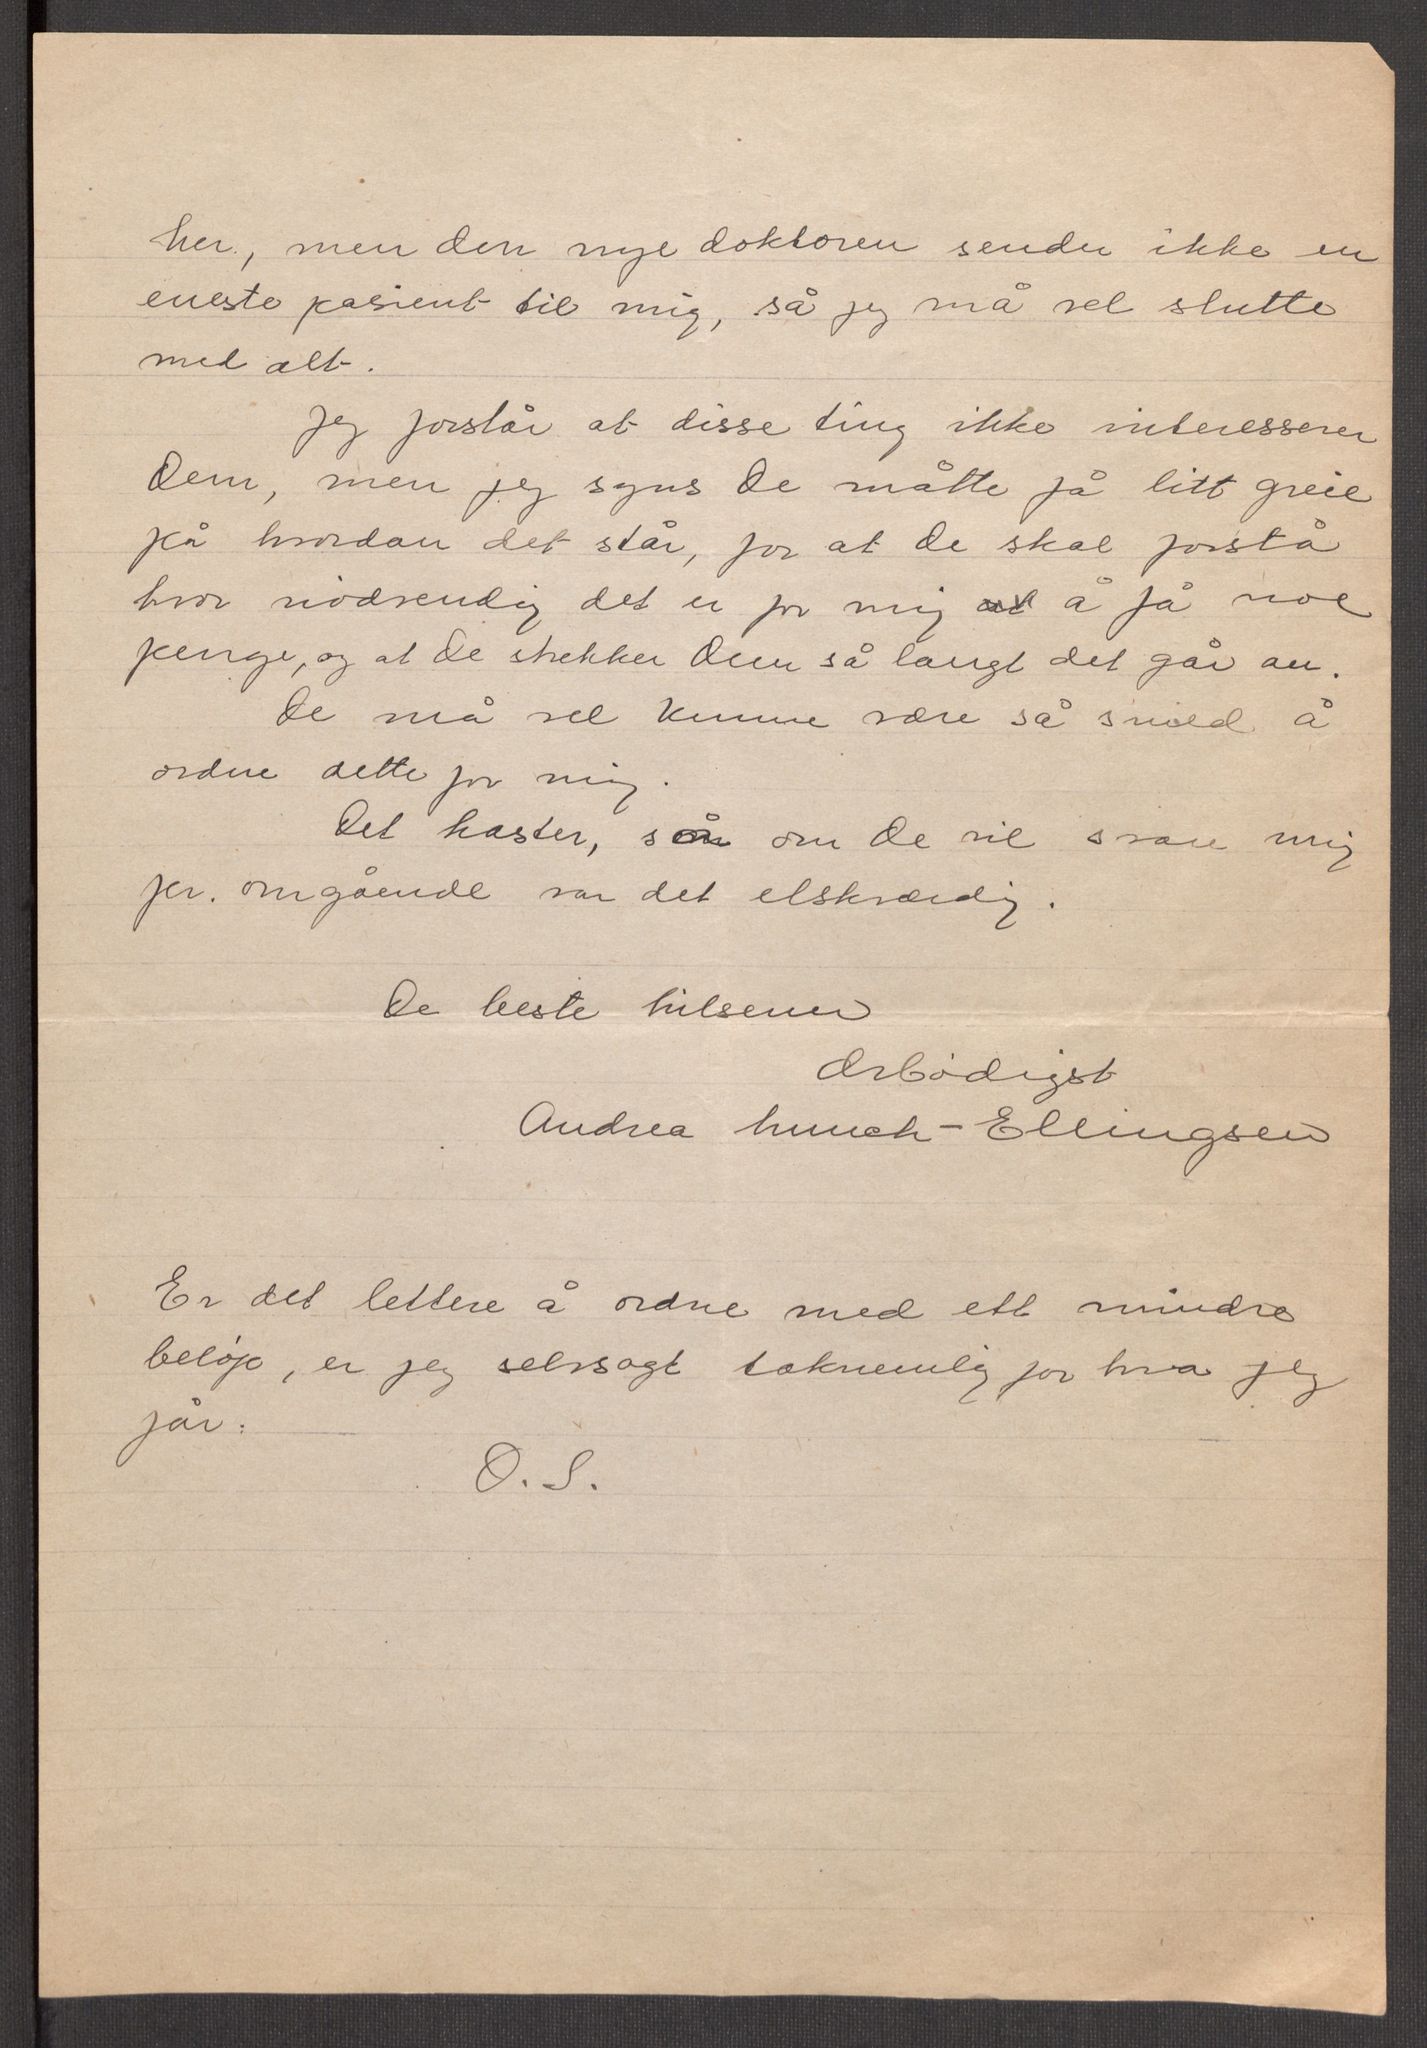 her, men den nye doktoren sender ikke en
eneste pasient til mig, så jeg må vel slutte
med alt.
Jeg forstår at disse ting ikke interesserer
Dem, men jeg syns De måtte få litt greie
på hvordan det står, for at De skal forstå
hvor nödvendig det er for mig at å få noe
penge, og at De strekker Dem så langt det går an.
De må vel kunne være så snild å
ordne dette for mig.
Det haster, så om De vil svare mig
pr. omgående var det elskværdig.
De beste hilsener
Ærbödigst
Andrea Munch-Ellingsen
Er det lettere å ordne med ett mindre
beløp, er jeg selvsagt taknemlig for hva jeg
får.
D.S.